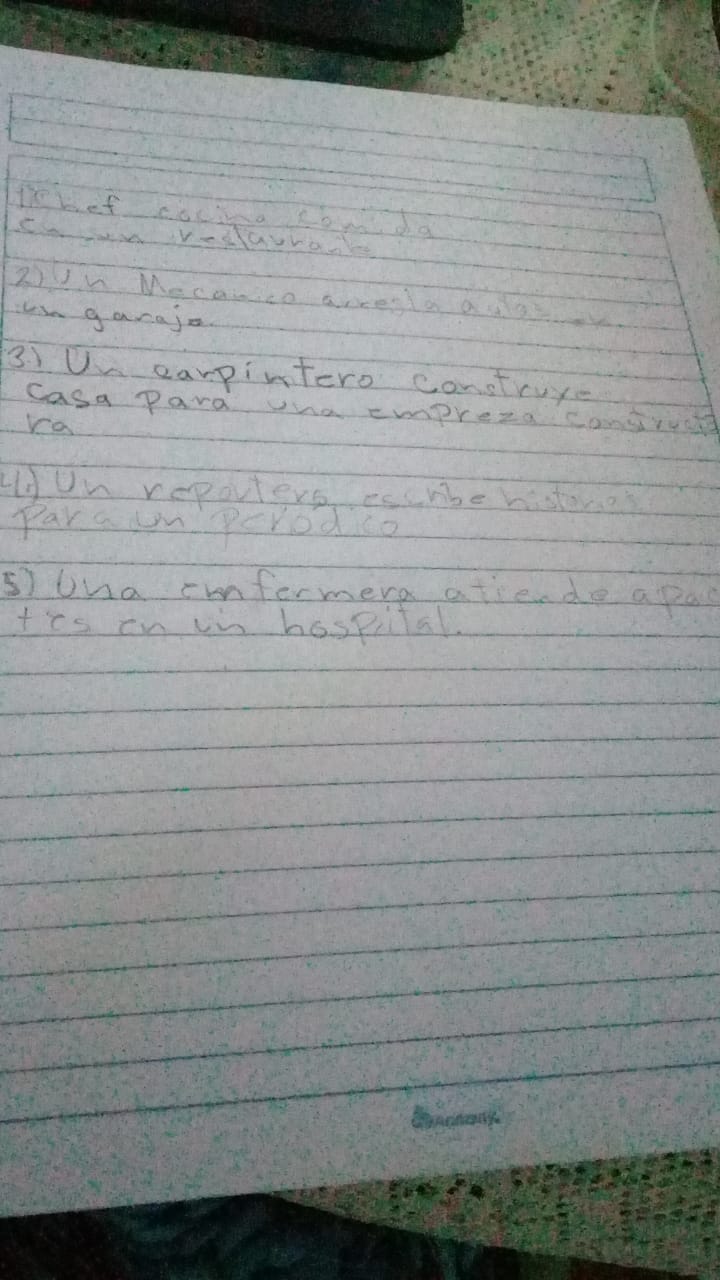 1) Chef cocina comida
en un restaurante
2) Un Mecanico arregla autos en
un garaje.
3) Un carpintero construye
casa para una empreza constructo
ra
4.) Un reportero escribe historias
para un periodico
5) Una emfermera atiende a pac
tes en un hospital.